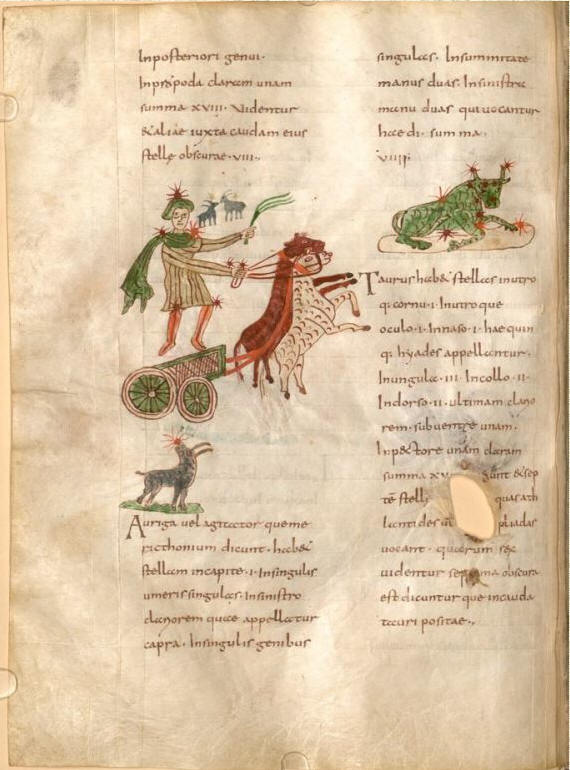 Inposteriori genu i·
Inprępoda claram unam
summa XVIII· Videntur
& aliae iuxta caudam eius
stellę obscurae· VIIII·
Auriga uel agitator quem e
ricthonium dicunt· hab&
stellam incapite· I· Insingulis
umeris singulas· Insinistro
clariorem quae appellatur
capra· Insingulis genibus
singulas· Insummitate
manus duas· Insinistra
manu duas qui uocantur
haedi· summa·
VIIII·
Taurus hab& stellas inutro
q; cornu· I· Inutroque
oculo· I· Innaso· I· hae quin
q; hyades appellantur·
Inungula· III· Incollo· II·
Indorso· II· ultimam claro
rem· subuentre unam·
Inpectore unam claram
summa sunt & sep
tē stellę quas ath
lantides pliadas
uocant· quarum sex
uidentur septima obscura
est dicuntur que incauda
tauri positae·